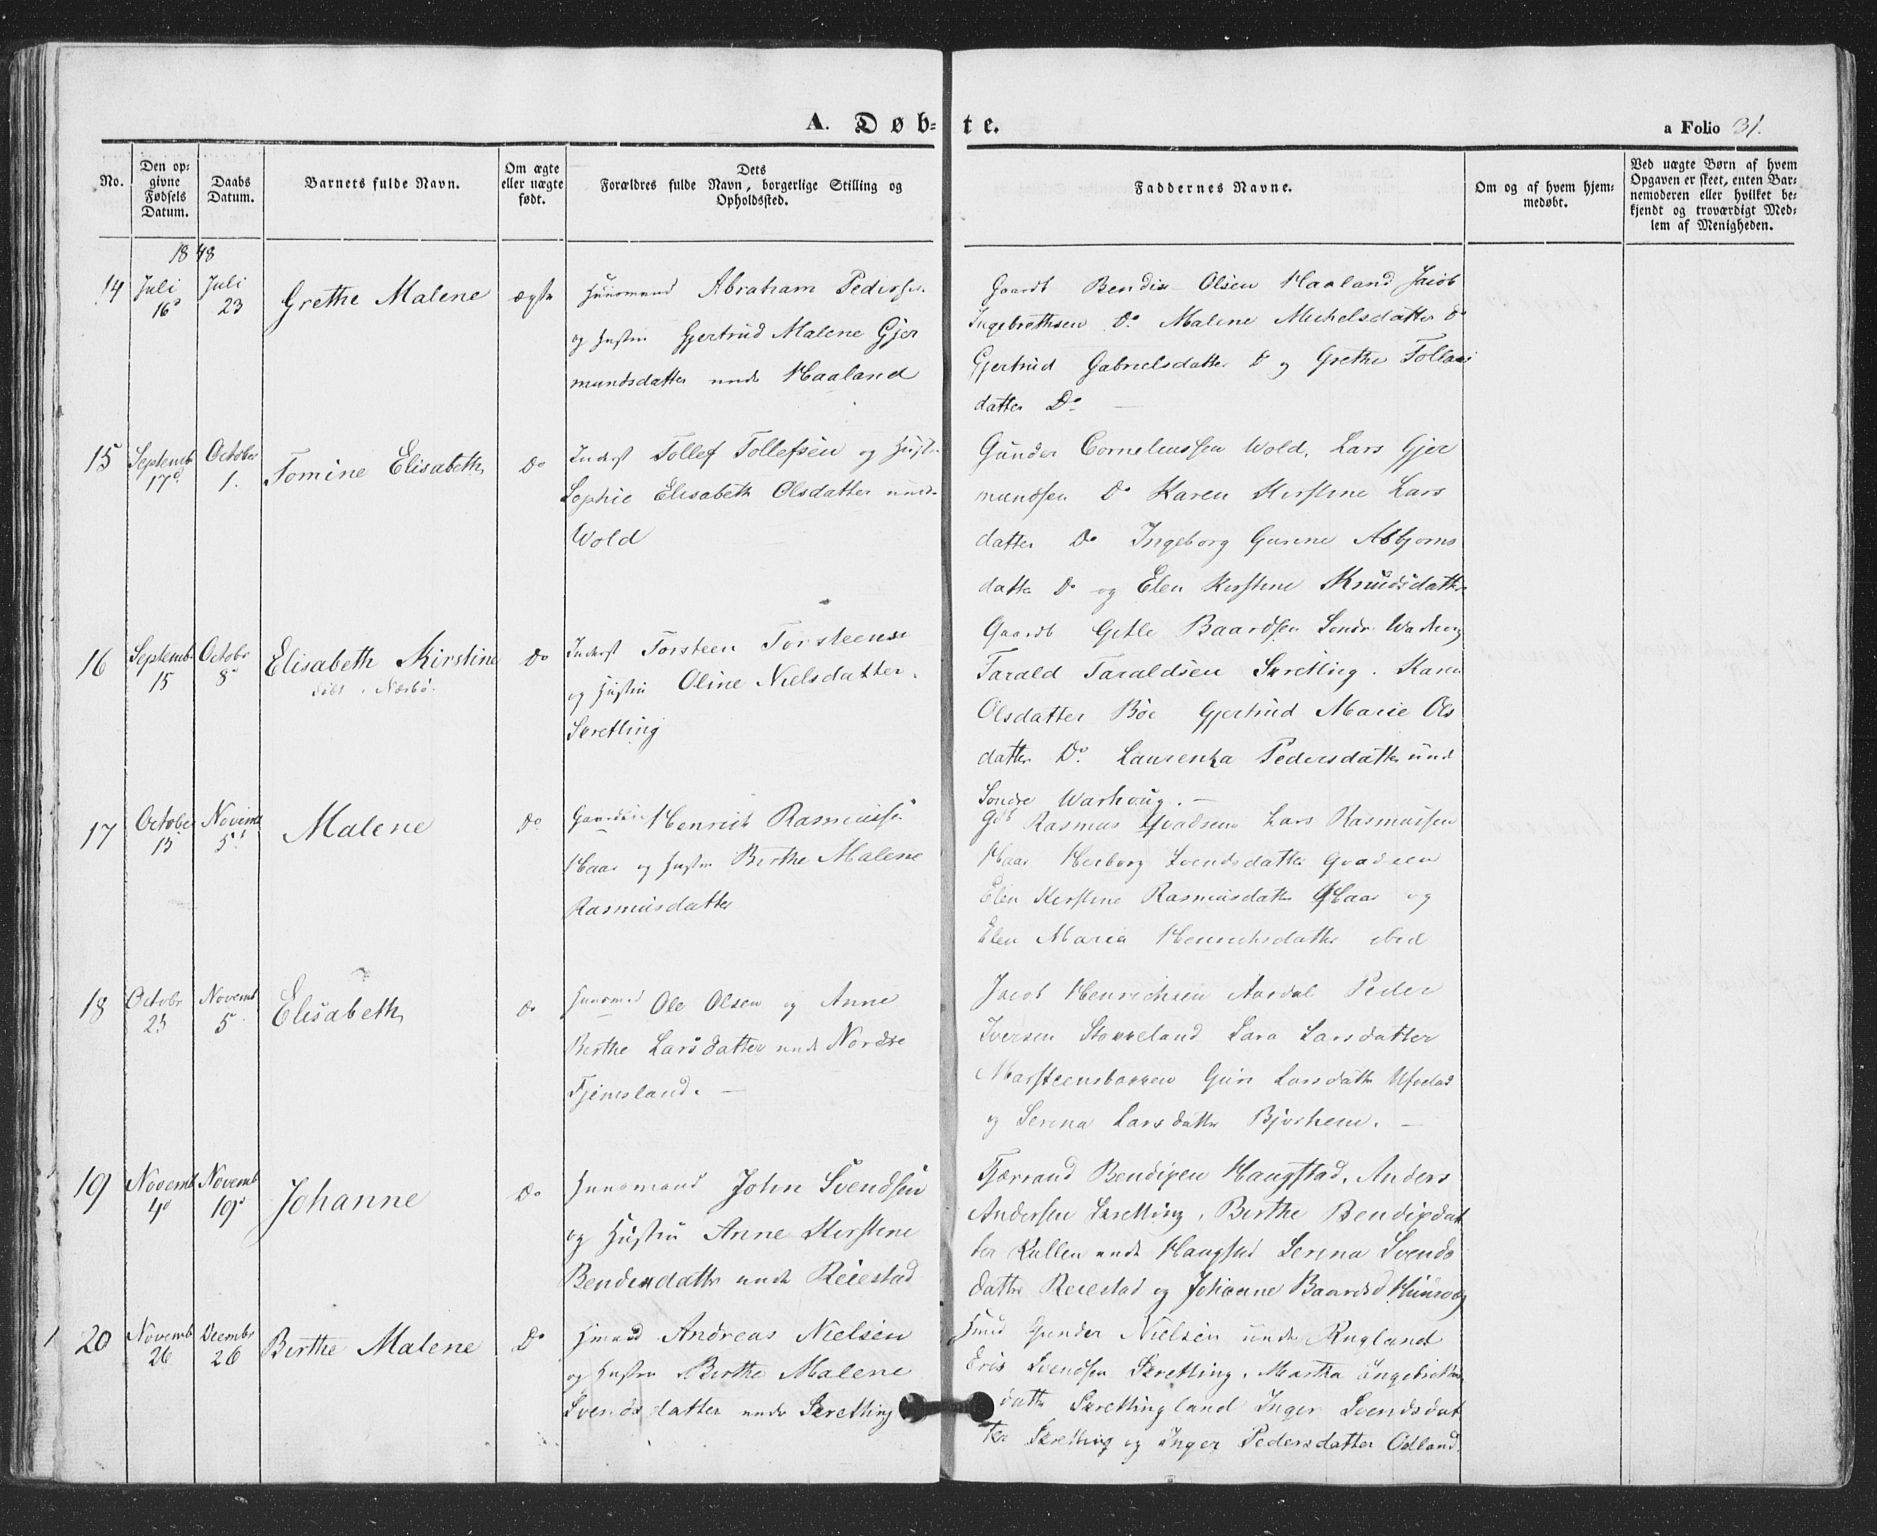 A. Døb-te.
a Folio 31.
No.
Den op-
givne
Fødsels
Datum.
Daabs
Datum.
Barnets fulde Navn.
Om ægte
eller uægte
født.
Dets
Forældres fulde Navn, borgerlige Stilling og
Opholdssted.
Faddernes Navne.
Om og af hvem hjem-
medøbt.
Ved uægte Børn af hvem
Opgaven er skeet, enten Bar-
nemoderen eller hvilket be-
kjendt og troværdigt Med-
lem af Menigheden.
1848
14
Juli
16
Juli
23
Grethe Malene
ægte
Huusmand Abraham Peders
og Hustru Gjertrud Malene Gjer
mundsdatter unde Haaland
Gaardb Bendix Olsen Haaland Jacob
Ingebrethsen Do Malene Michelsdatter Do
Gjertrud Gabrielsdatter Do og Grethe
datter Do
15
Septemb
17
October
1.
Tomine Elisabeth
Do
Inderst Tollef Tollefsen og Hustru
Sophie Elisabeth Olsdatter unde
Wold
Gunder Corneliussen Wold, Lars Gjer
mundsen Do Karen Kirstine Lars
datter Do Ingeborg Gurine Asbjorns
datter Do og Elen Kirstine Knudsdatter
16
Septemb
15
Octobr
8
Elisabeth Kirstine
døbt i Nærbø.
Do
Inderst Torsteen Torsteense
og Hustru Oline Nielsdatter.
Skretting
Gaardb Baardsen Søndr Warhoug
Tarald Taraldsen Skretting. Karen
Olsdatter Bøe Gjertrud Marie Ols
datter Do. Laurentza Pedersdatter und
Søndre Warhoug.
17
October
15
Novemb
5
Malene
Do
Gaardm Henrick Rasmussen
Haar og Hustru Berthe Malene
Rasmusdatter
Gdb Rasmus Lars Rasmussen
Haar Herborg Svendsdatter
Elen Kirstine Rasmusdatter Haar og
Elen Maria Henrichsdatter ibid
18
Octobr
25
Novemb
5
Elisabeth
Do
Huusmd Ole Olsen og Anne
Berthe Larsdatter unde Nordre
Tjemsland.
Jacob Henrichsen Aardal Peder
Iversen Stokkeland Sara Larsdatter
Guri Larsdatter
og Serina Larsdatter Bjorhem.
19
Novemb
4
Novemb
19
Johanne
Do
Huusmand John Svendsen
og Hustru Anne Kirstine
Bendixdatter unde Reiestad
Tjærrand Bendixen Haugstad, Anders
Andersen Skretting, Berthe Bendixdat
ter Kallen unde Haugstad Serina Svends
datter Reiestad og Johanne Baardsd
20
Novemb
26
Decembr
26
Berthe Malene
Do
Hmand Andreas Nielsen
og Hustru Berthe Malene
Svendsdatter unde Skretting
Hmd Gunder Nielsen unde Rugland
Eric Svendsen Skretting. Martha Ingebrethsd
datter Skrettingland Inger Svendsdat
ter Skretting og Inger Pedersdatter Odland.